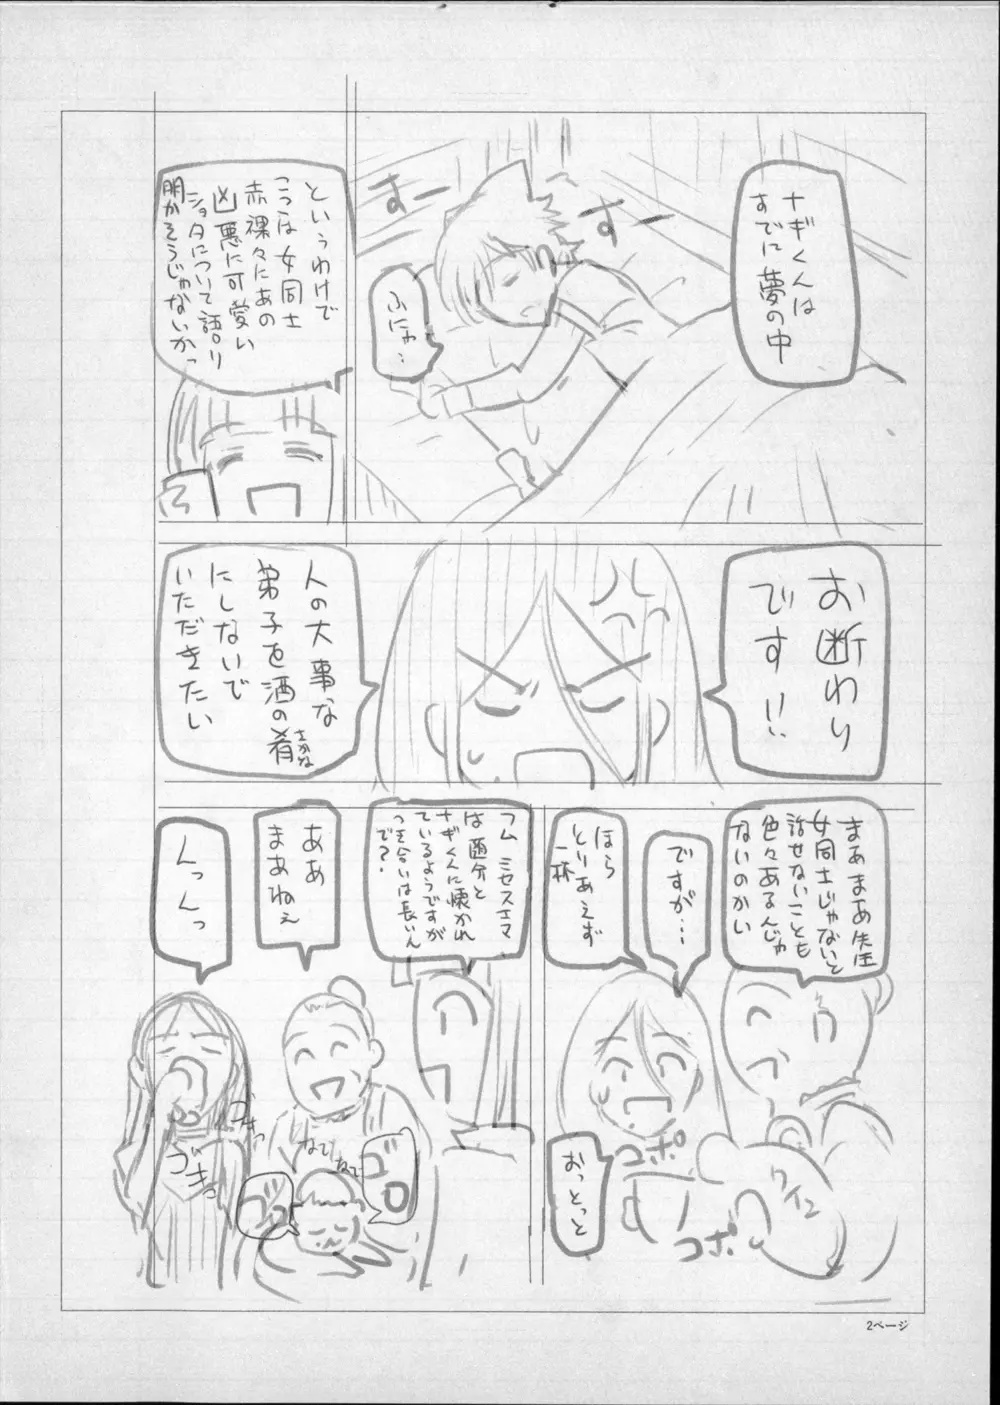 ナギくんは
すでに夢の中
すー
すー
ふにゃ…
というわけで
ここは女同士
赤裸々にあの
凶悪に可愛い
ショタについて語り
明かそうじゃないかっ
お断わり
です!!
人の大事な
弟子を酒の肴
さかな
にしないで
いただきたい
まあまあ先生
女同士じゃないと
話せないことも
色々あるんじゃ
ないのかい
ですが…
ほら
とりあえず
一杯
おっとっと
コポ
コポ
ワイン
フム ミセスエマ
は随分と
ナギくんに懐かれ
ているようですが
つき合いは長いん
で?
ああ
まあねえ
んっんっ
ごきゅっ
ごきゅっ
なで
なで
ゴロ
ゴロ
2ページ